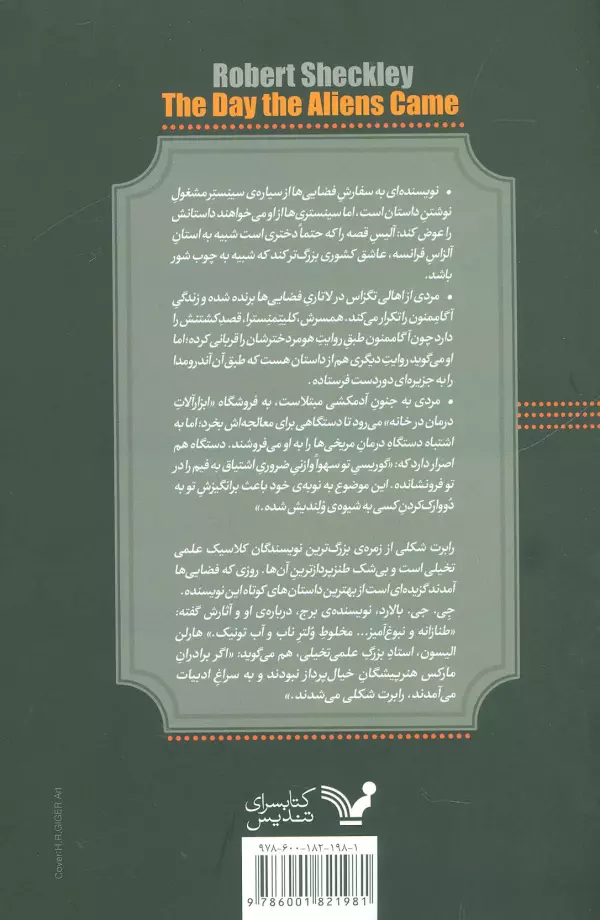 Robert Sheckley
The Day the Aliens Came
• نویسنده‌ای به سفارشِ فضایی‌ها از سیاره‌ی سینِستِر مشغولِ
نوشتنِ داستان است، اما سینستری‌ها از او می‌خواهند داستانش
را عوض کند: آلیسِ قصه را که حتماً دختری است شبیه به استانِ
آلزاسِ فرانسه، عاشق کشوری بزرگ‌تر کند که شبیه به چوب شور
باشد.
• مردی از اهالی تگزاس در لاتاریِ فضایی‌ها برنده شده و زندگیِ
آگاممنون را تکرار می‌کند. همسرش، کلیتمنِسترا، قصدِ کشتنش را
دارد چون آگاممنون طبقِ روایتِ هومر دخترشان را قربانی کرده؛ اما
او می‌گوید روایتِ دیگری هم از داستان هست که طبق آن آندرومدا
را به جزیره‌ای دوردست فرستاده.
• مردی به جنونِ آدمکشی مبتلاست، به فروشگاه «ابزارآلاتِ
درمان در خانه» می‌رود تا دستگاهی برای معالجه‌اش بخرد؛ اما به
اشتباه دستگاهِ درمانِ مریخی‌ها را به او می‌فروشند. دستگاه هم
اصرار دارد که: «گوریسیِ تو سهواً وازنیِ ضروریِ اشتیاق به فیم را در
تو فرونشانده. این موضوع به نوبه‌ی خود باعث برانگیزشِ تو به
دُووارک‌کردنِ کسی به شیوه‌ی وُلندیش شده.»
رابرت شکلی از زمره‌ی بزرگ‌ترین نویسندگان کلاسیک علمی
تخیلی است و بی‌شک طنزپردازترینِ آن‌ها. روزی که فضایی‌ها
آمدند گزیده‌ای است از بهترین داستان‌های کوتاه این نویسنده.
جِی. جی. بالارد، نویسنده‌ی برج، درباره‌ی او و آثارش گفته:
«طنازانه و نبوغ‌آمیز... مخلوطِ وُلترِ ناب و آب تونیک.» هارلن
الیسون، استادِ بزرگِ علمی‌تخیلی، هم می‌گوید: «اگر برادرانِ
مارکس هنرپیشگانِ خیال‌پرداز نبودند و به سراغِ ادبیات
می‌آمدند، رابرت شکلی می‌شدند.»
Cover:H.R.GIGER Art
کتابسرای
تندیس
۹۷۸-۶۰۰-۱۸۲-۱۹۸-۱
9 786001 821981